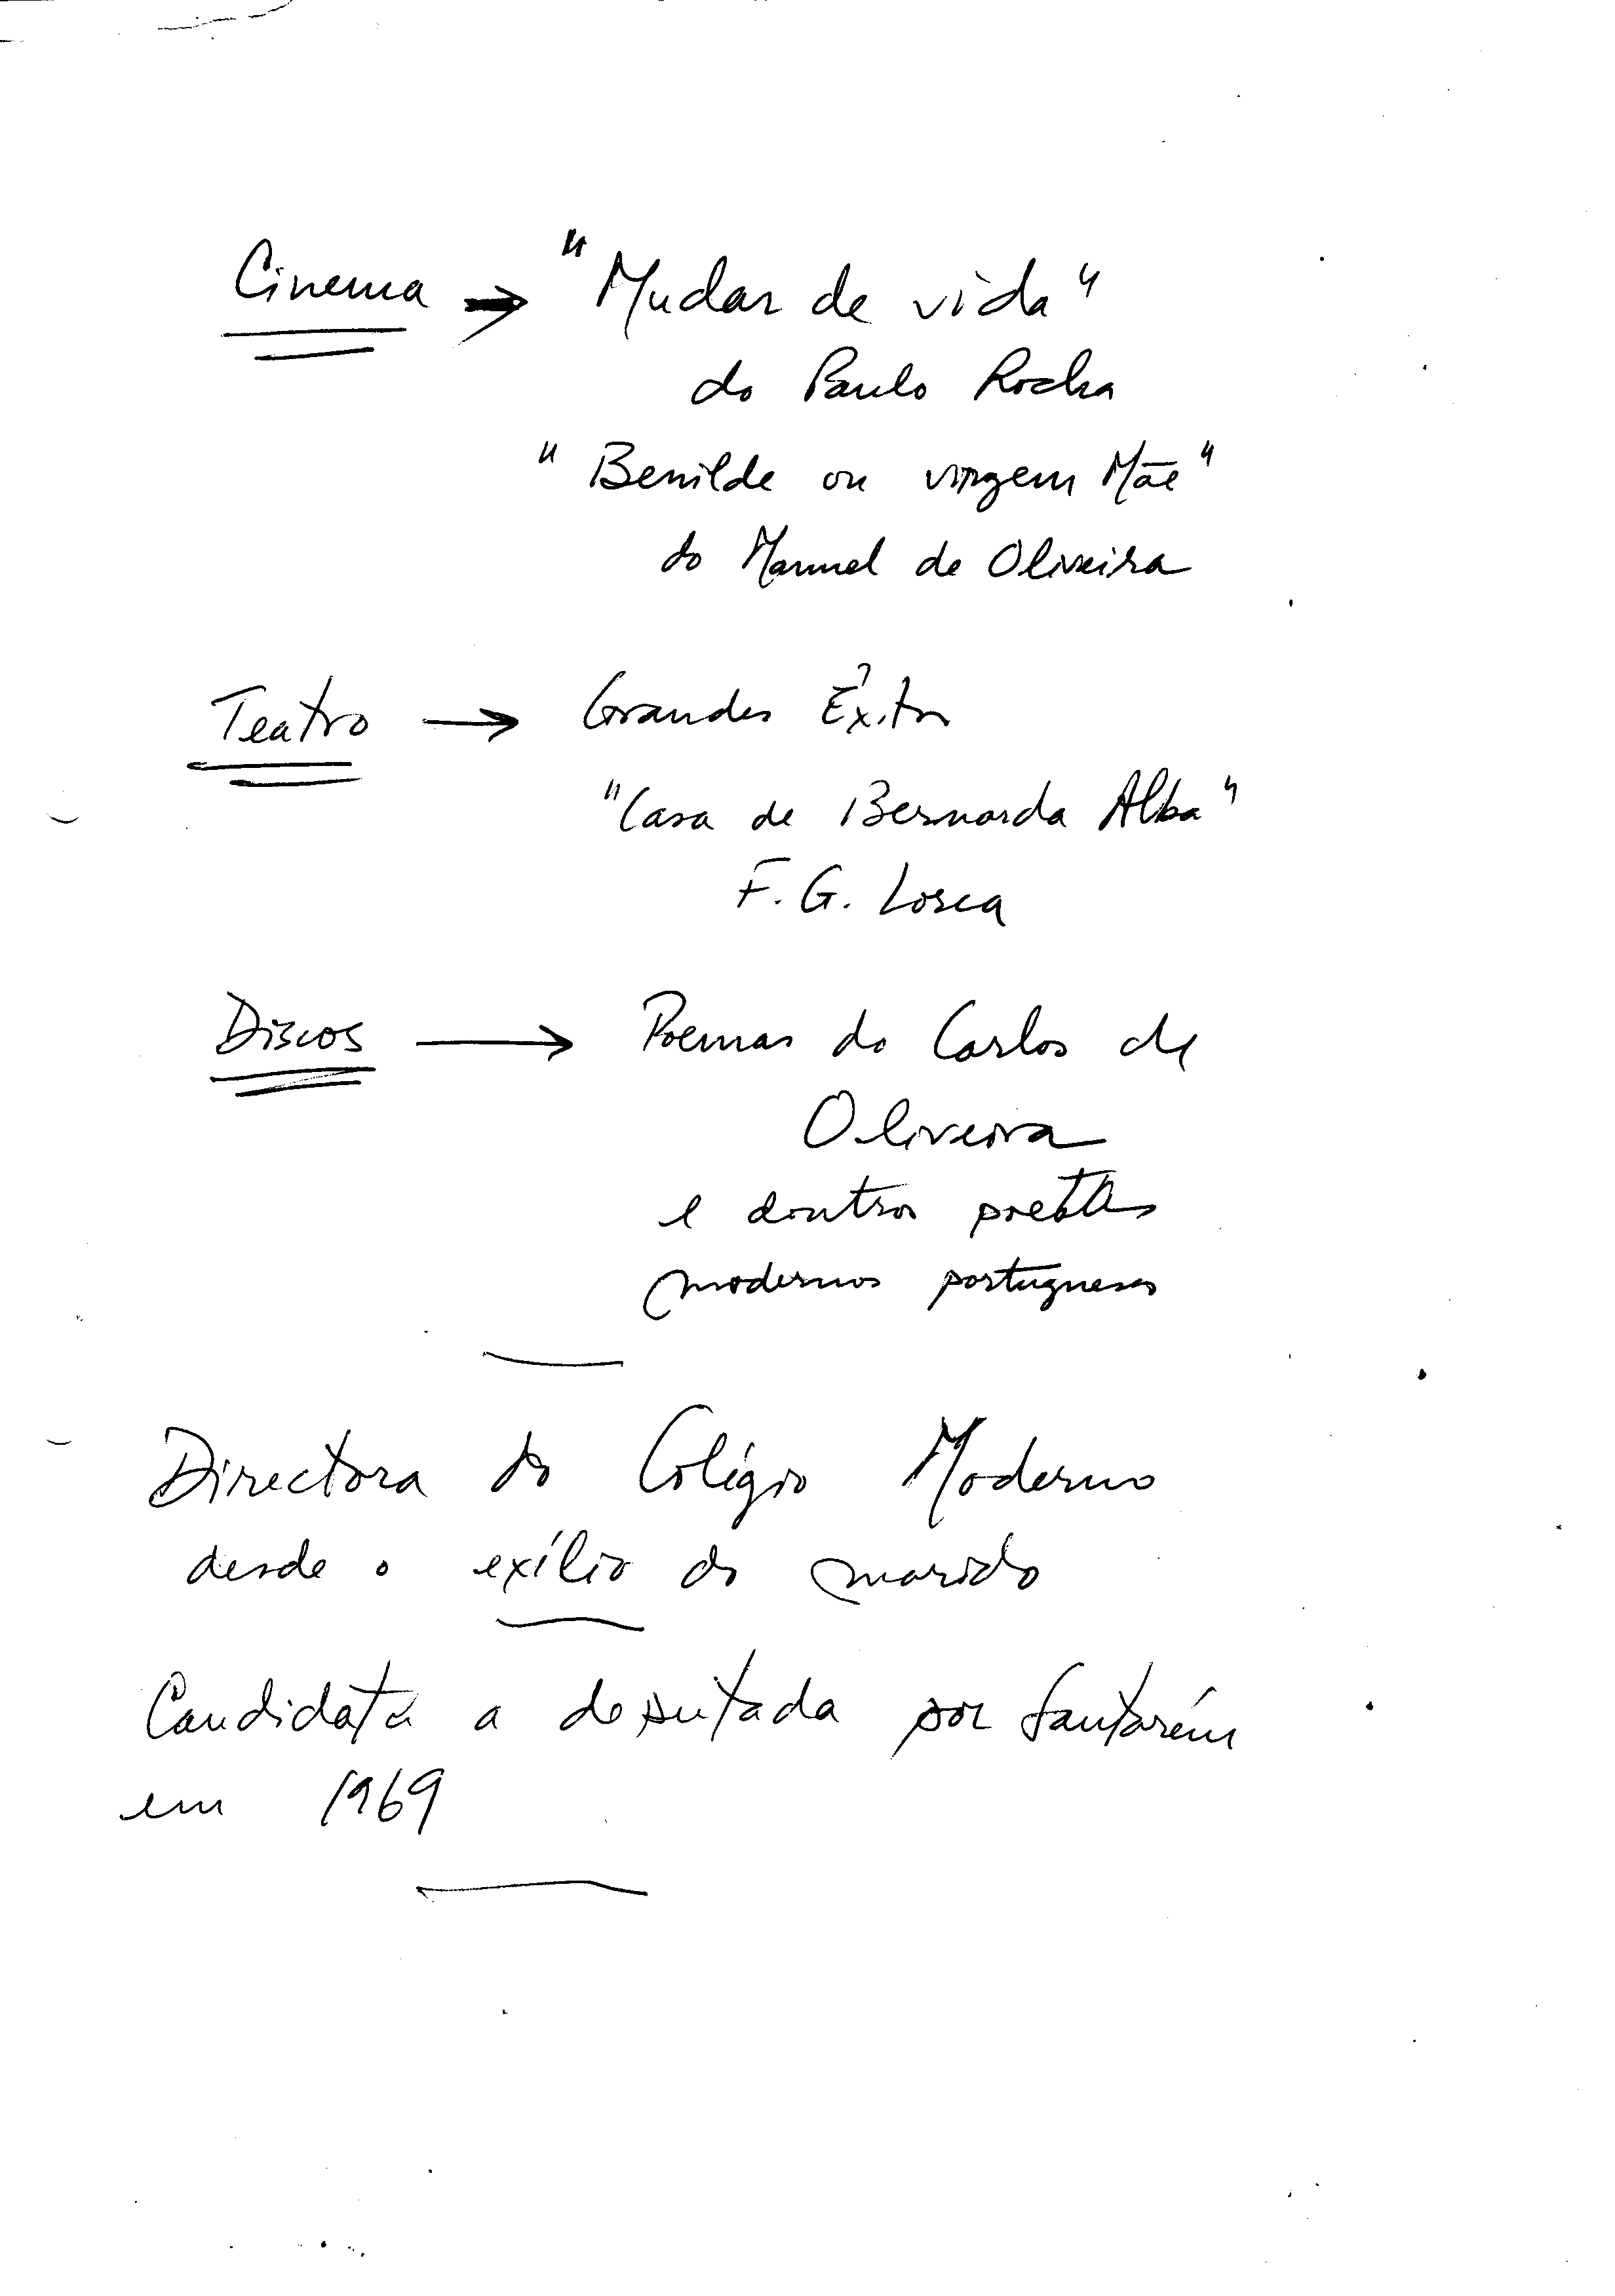 Cinema → "Mudar de vida"
do Paulo Rocha
"Benilde ou virgem Mãe"
do Manuel de Oliveira
Teatro → Grandes Êxitos
"Casa de Bernarda Alba"
F. G. Lorca
Discos → Poemas do Carlos de
Oliveira
e doutros poetas
modernos portugueses
Directora do Colégio Moderno
desde o exílio do marido
Candidata a deputada por Santarém
em 1969